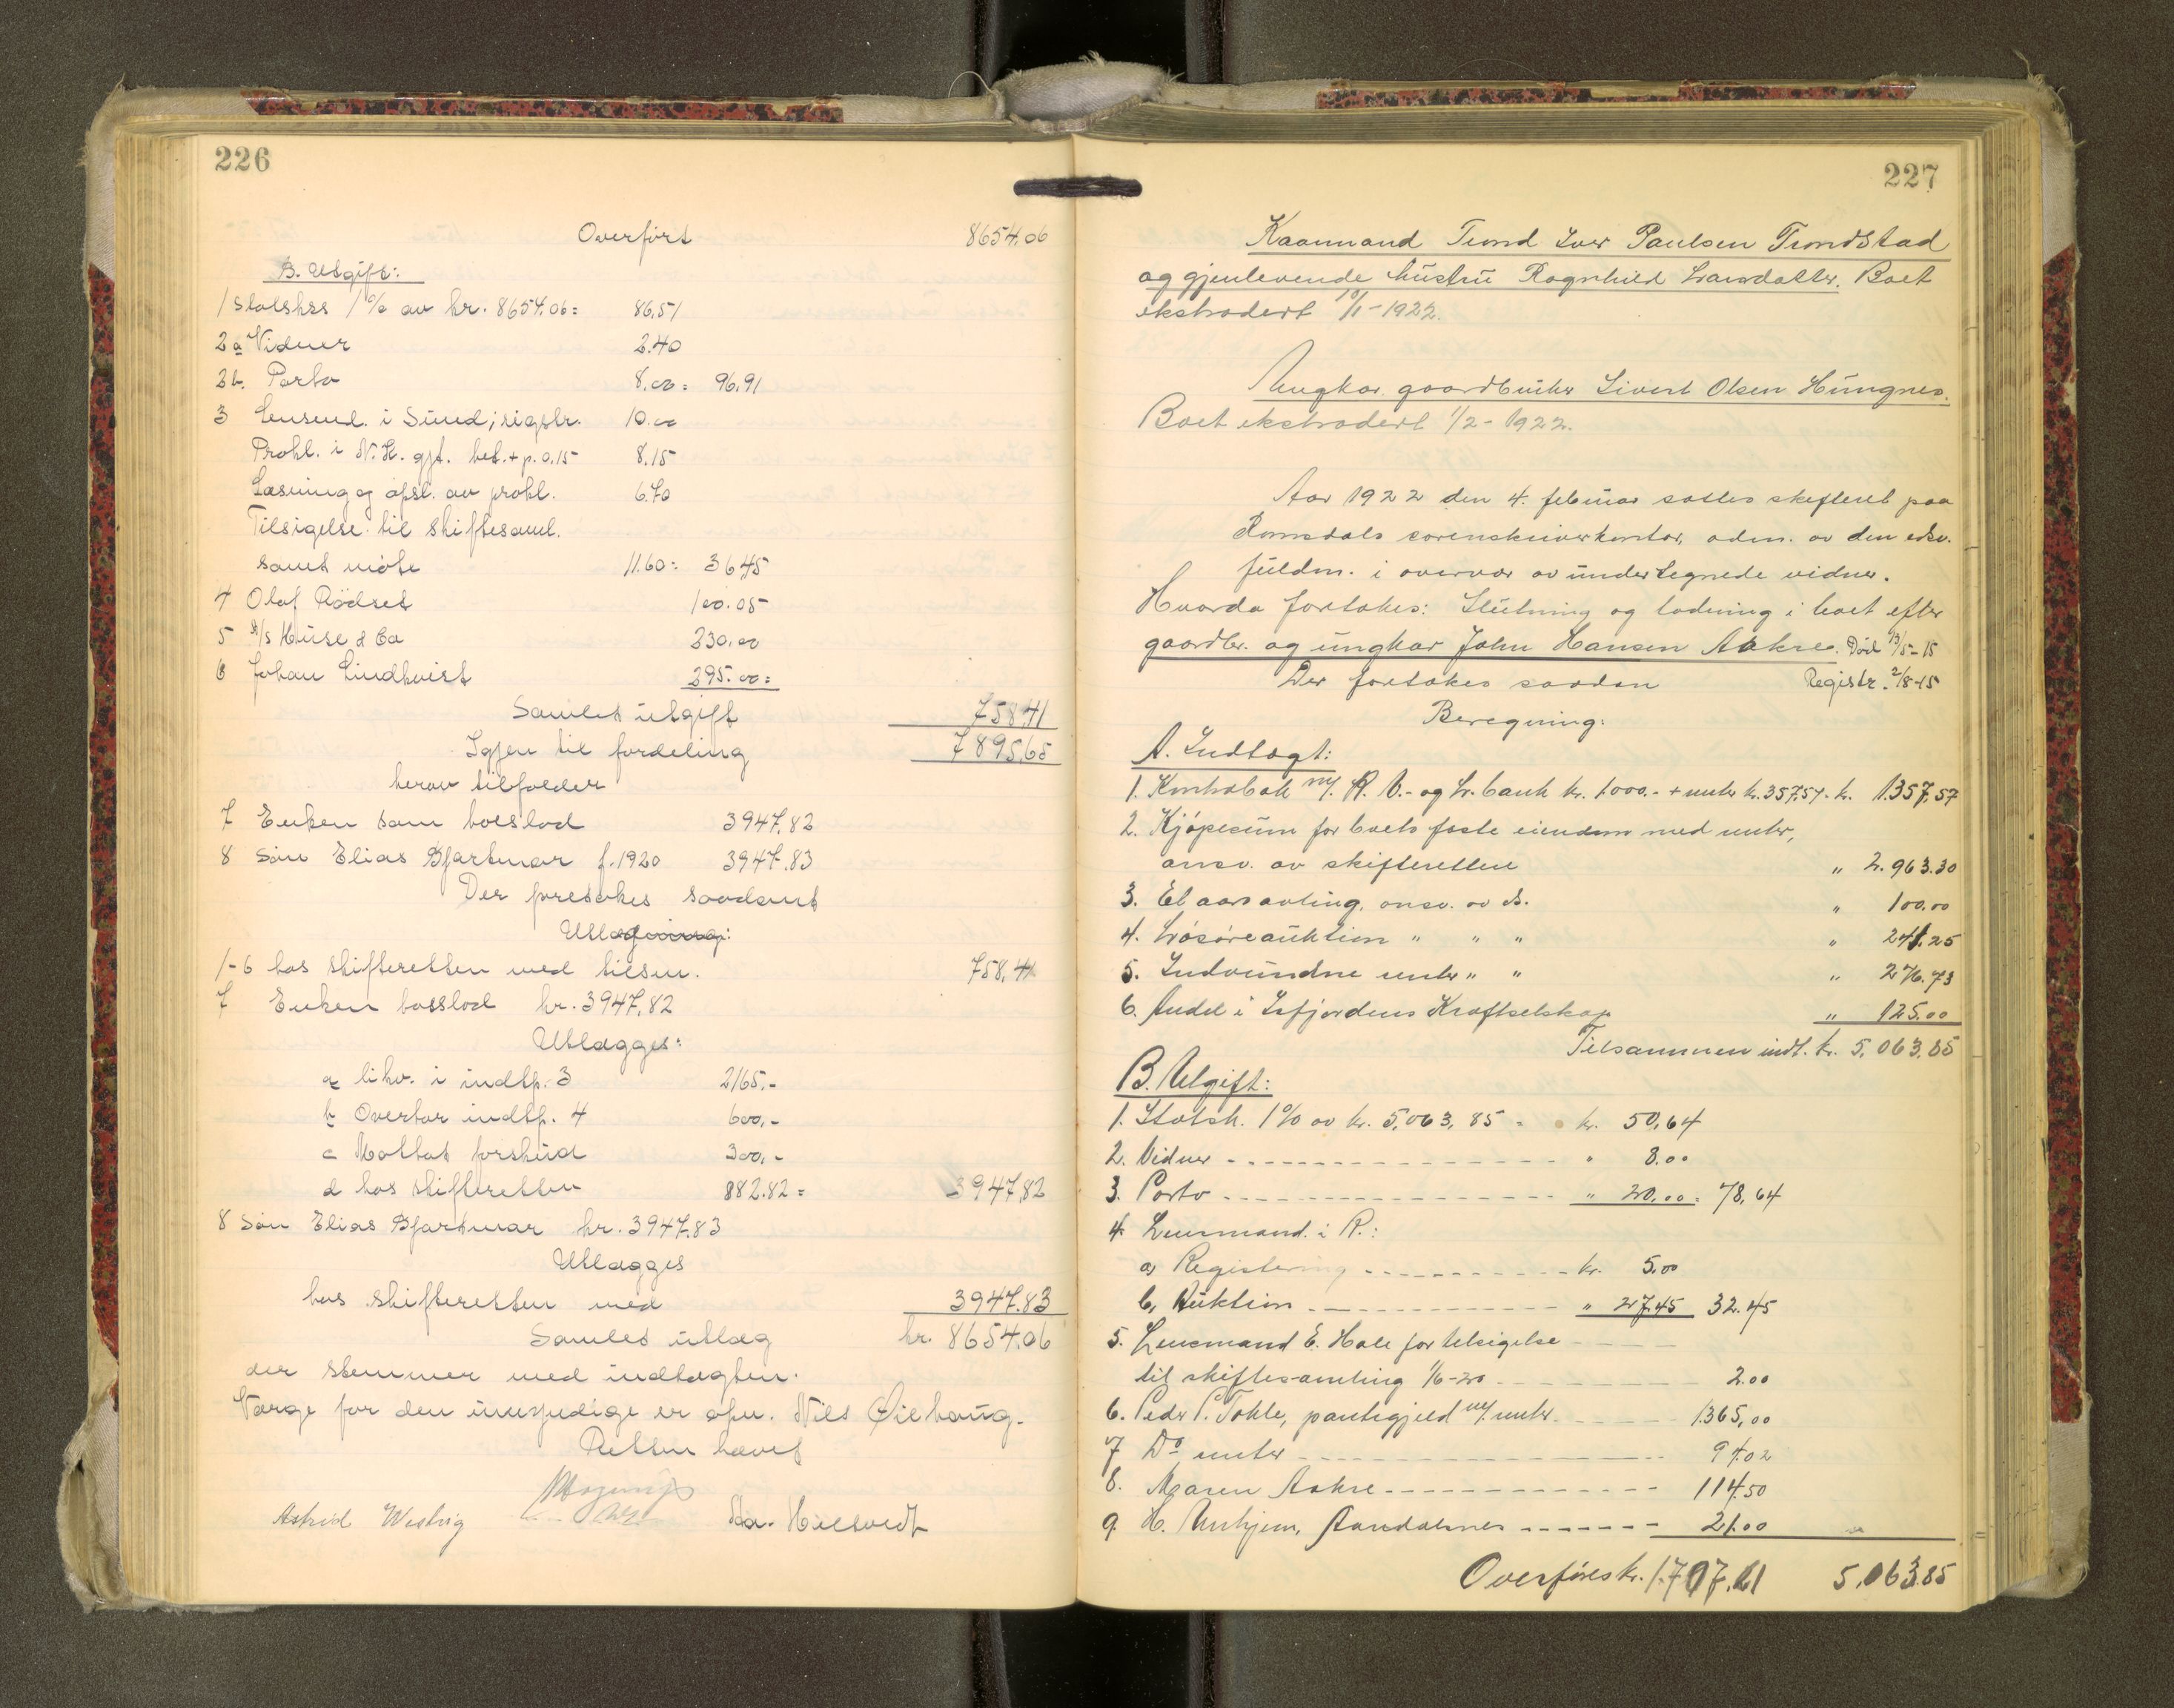 226
Overført 8654.06
B. Utgift:
1 Statskas 1% av kr. 8654.06 = 86.51
2a Vidner 2.40
2b. Porto 8.00 = 96.91
3 Lensmd. i Sund; registr. 10.00
Prokl. i N. K. gjt. bet. + p. 0.15 8.15
Læsning og opsl. av prokl. 6.70
Tilsigelse til skiftesaml.
samt møte 11.60 = 36.45
4 Olaf Rödset 100.05
5 A/s Huse & Co 230.00
6 Johan Lindkvist 295.00 =
Samlet utgift 758.41
Igjen til fordeling 7895.65
herav tilfalder
7 Enken som boeslod 3947.82
8 Søn Elias Bjartmar f. 1920 3947.83
Der foretokes saadant
Utlæg:
1-6 hos skifteretten med tilsm. 758.41
7 Enken boeslod kr. 3947.82
Utlægges:
a likv. i indtp. 3 2165.-
b Overtar indtp. 4 600.-
c Mottat forskud 300.-
d hos skifteretten 882.82 = 3947.82
8 Søn Elias Bjartmar kr. 3947.83
Utlægges
hos skifteretten med 3947.83
Samlet utlæg kr. 8654.06
der stemmer med indtægten.
Værge for den umyndige er opn. Nils Øiehaug.
Retten hævet
Astrid Westvig
227
Kaarmand Trond Iver Paulsen Trondstad
og gjenlevende hustru Ragnhild Larsdatter. Boet
ekstradert 10/1-1922.
Ungkar gaardbruker Sivert Olsen Hungnes.
Boet ekstradert 1/2-1922.
Aar 1922 den 4. februar sattes skifteret paa
Romsdals sorenskriverkontor, adm. av den edsv.
fuldm. i overvær av undertegnede vidner.
Hvorda foretokes: Slutning og lodning i boet efter
gaardbr. og ungkar John Hansen Aakre. Död 13/5-15
Der foretokes saadan Registr. 2/8-15
Beregning:
A. Indtægt:
1. Kontrabok m/. R. V.- og Lr. bank kr. 1000.- + renter kr. 357.57. kr. 1.357,57
2. Kjøpesum for boets faste eiendom med renter,
ansv. av skifteretten " 2.963.30
3. Et aars avling, ansv. av do. " 100.00
4. Løsøreauktion " " " " 241.25
5. Indvundne renter " " " 276.73
6. Andel i Isfjordens Kraftselskap " 125.00
Tilsammen indt. kr. 5,063.85
B. Utgift:
1. Statsk. 1% av kr. 5,063,85 = kr. 50,64
2. Vidner " 8.00
3. Porto " 20.00 = 78,64
4. Lensmand. i R.:
a, Registering kr. 5.00
b, Auktion " 27.45 32.45
5. Lensmand E. Hole for tilsigelse
til skiftesamling 1/6-20 2.00
6. Peder P. Tokle, pantegjeld m/. renter 1365,00
7 Do renter 94.02
8. Maren Aakre 114.50
9. H. Unhjem, Aandalsnes 21.00
Overføres kr. 1.707.61 5,063.85